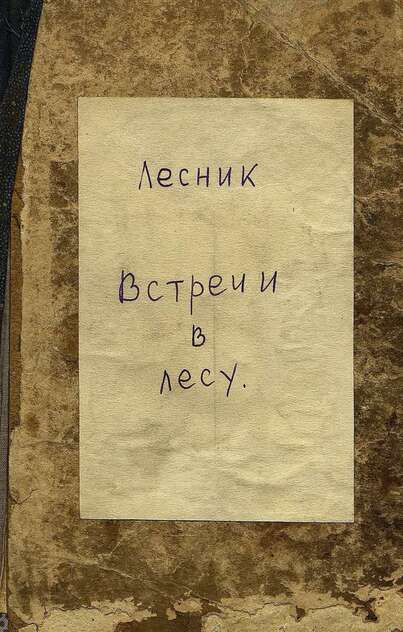 Лесник
Встречи
в
лесу.